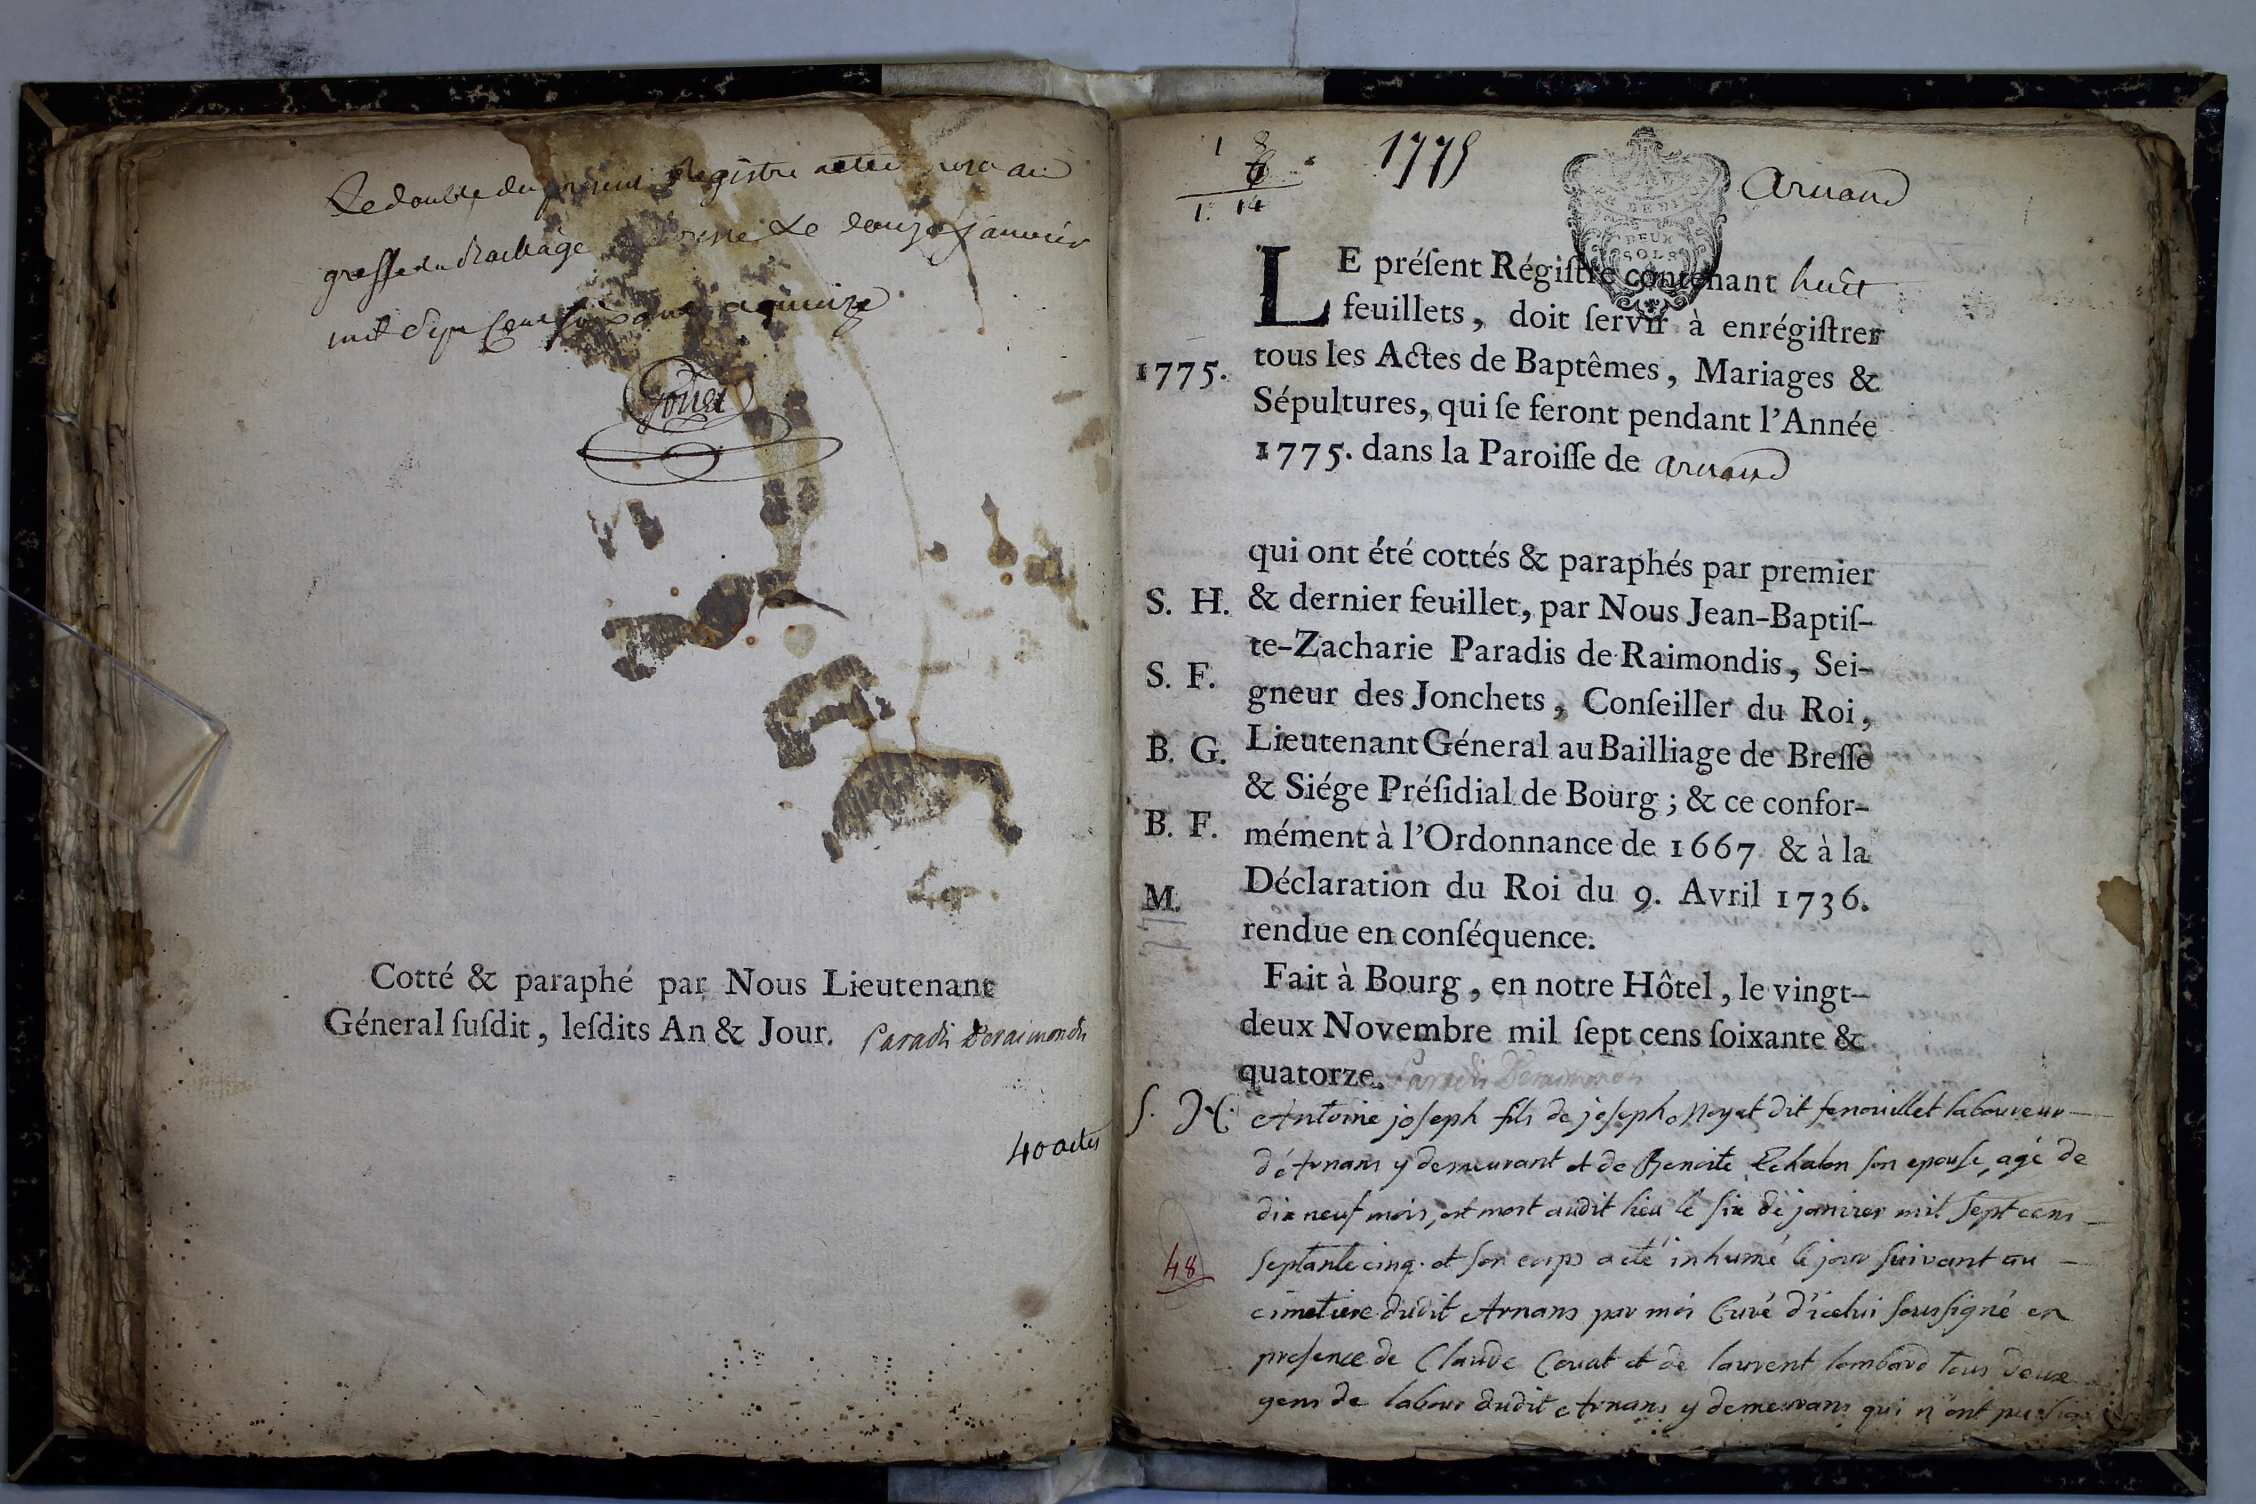 Le double du present Registre a eté
greffe du Bailliage Le douze janvier
mil sept cent soixante quinze
Cotté & paraphé par Nous Lieutenant
Géneral ſuſdit, leſdits An & Jour. Paradis Deraimondis
40 actes
1 8
6
1. 14
1775
DEUX
SOLS
Arnand
LE préſent Régiſtre contenant huit
feuillets, doit ſervir à enrégiſtrer
tous les Actes de Baptêmes, Mariages &
1775.
Sépultures, qui ſe feront pendant l'Année
1775. dans la Paroiſſe de Arnand
qui ont été cottés & paraphés par premier
S. H. & dernier feuillet, par Nous Jean-Baptiſ-
te-Zacharie Paradis de Raimondis, Sei-
S. F.
gneur des Jonchets, Conſeiller du Roi,
B. G. Lieutenant Géneral au Bailliage de Breſſe
& Siége Préſidial de Bourg; & ce confor-
B. F. mément à l'Ordonnance de 1667 & à la
M. Déclaration du Roi du 9. Avril 1736.
rendue en conſéquence.
Fait à Bourg, en notre Hôtel, le vingt-
deux Novembre mil ſept cens ſoixante &
quatorze. Paradis Deraimondis
S. H. Antoine joseph fils de joseph Noyat dit fenouillet laboureur
d'Arnans y demeurant et de Benoite Echalon son epouse, agé de
dix neuf mois, est mort audit lieu le six de janvier mil sept cens
48
septante cinq. et son corps a eté inhumé le jour suivant au
cimetiere dudit Arnans par moi Curé d'icelui soussigné en
presence de Claude Covat et de laurent lombard tous deux
gens de labour dudit Arnans y demeurans qui n'ont pu